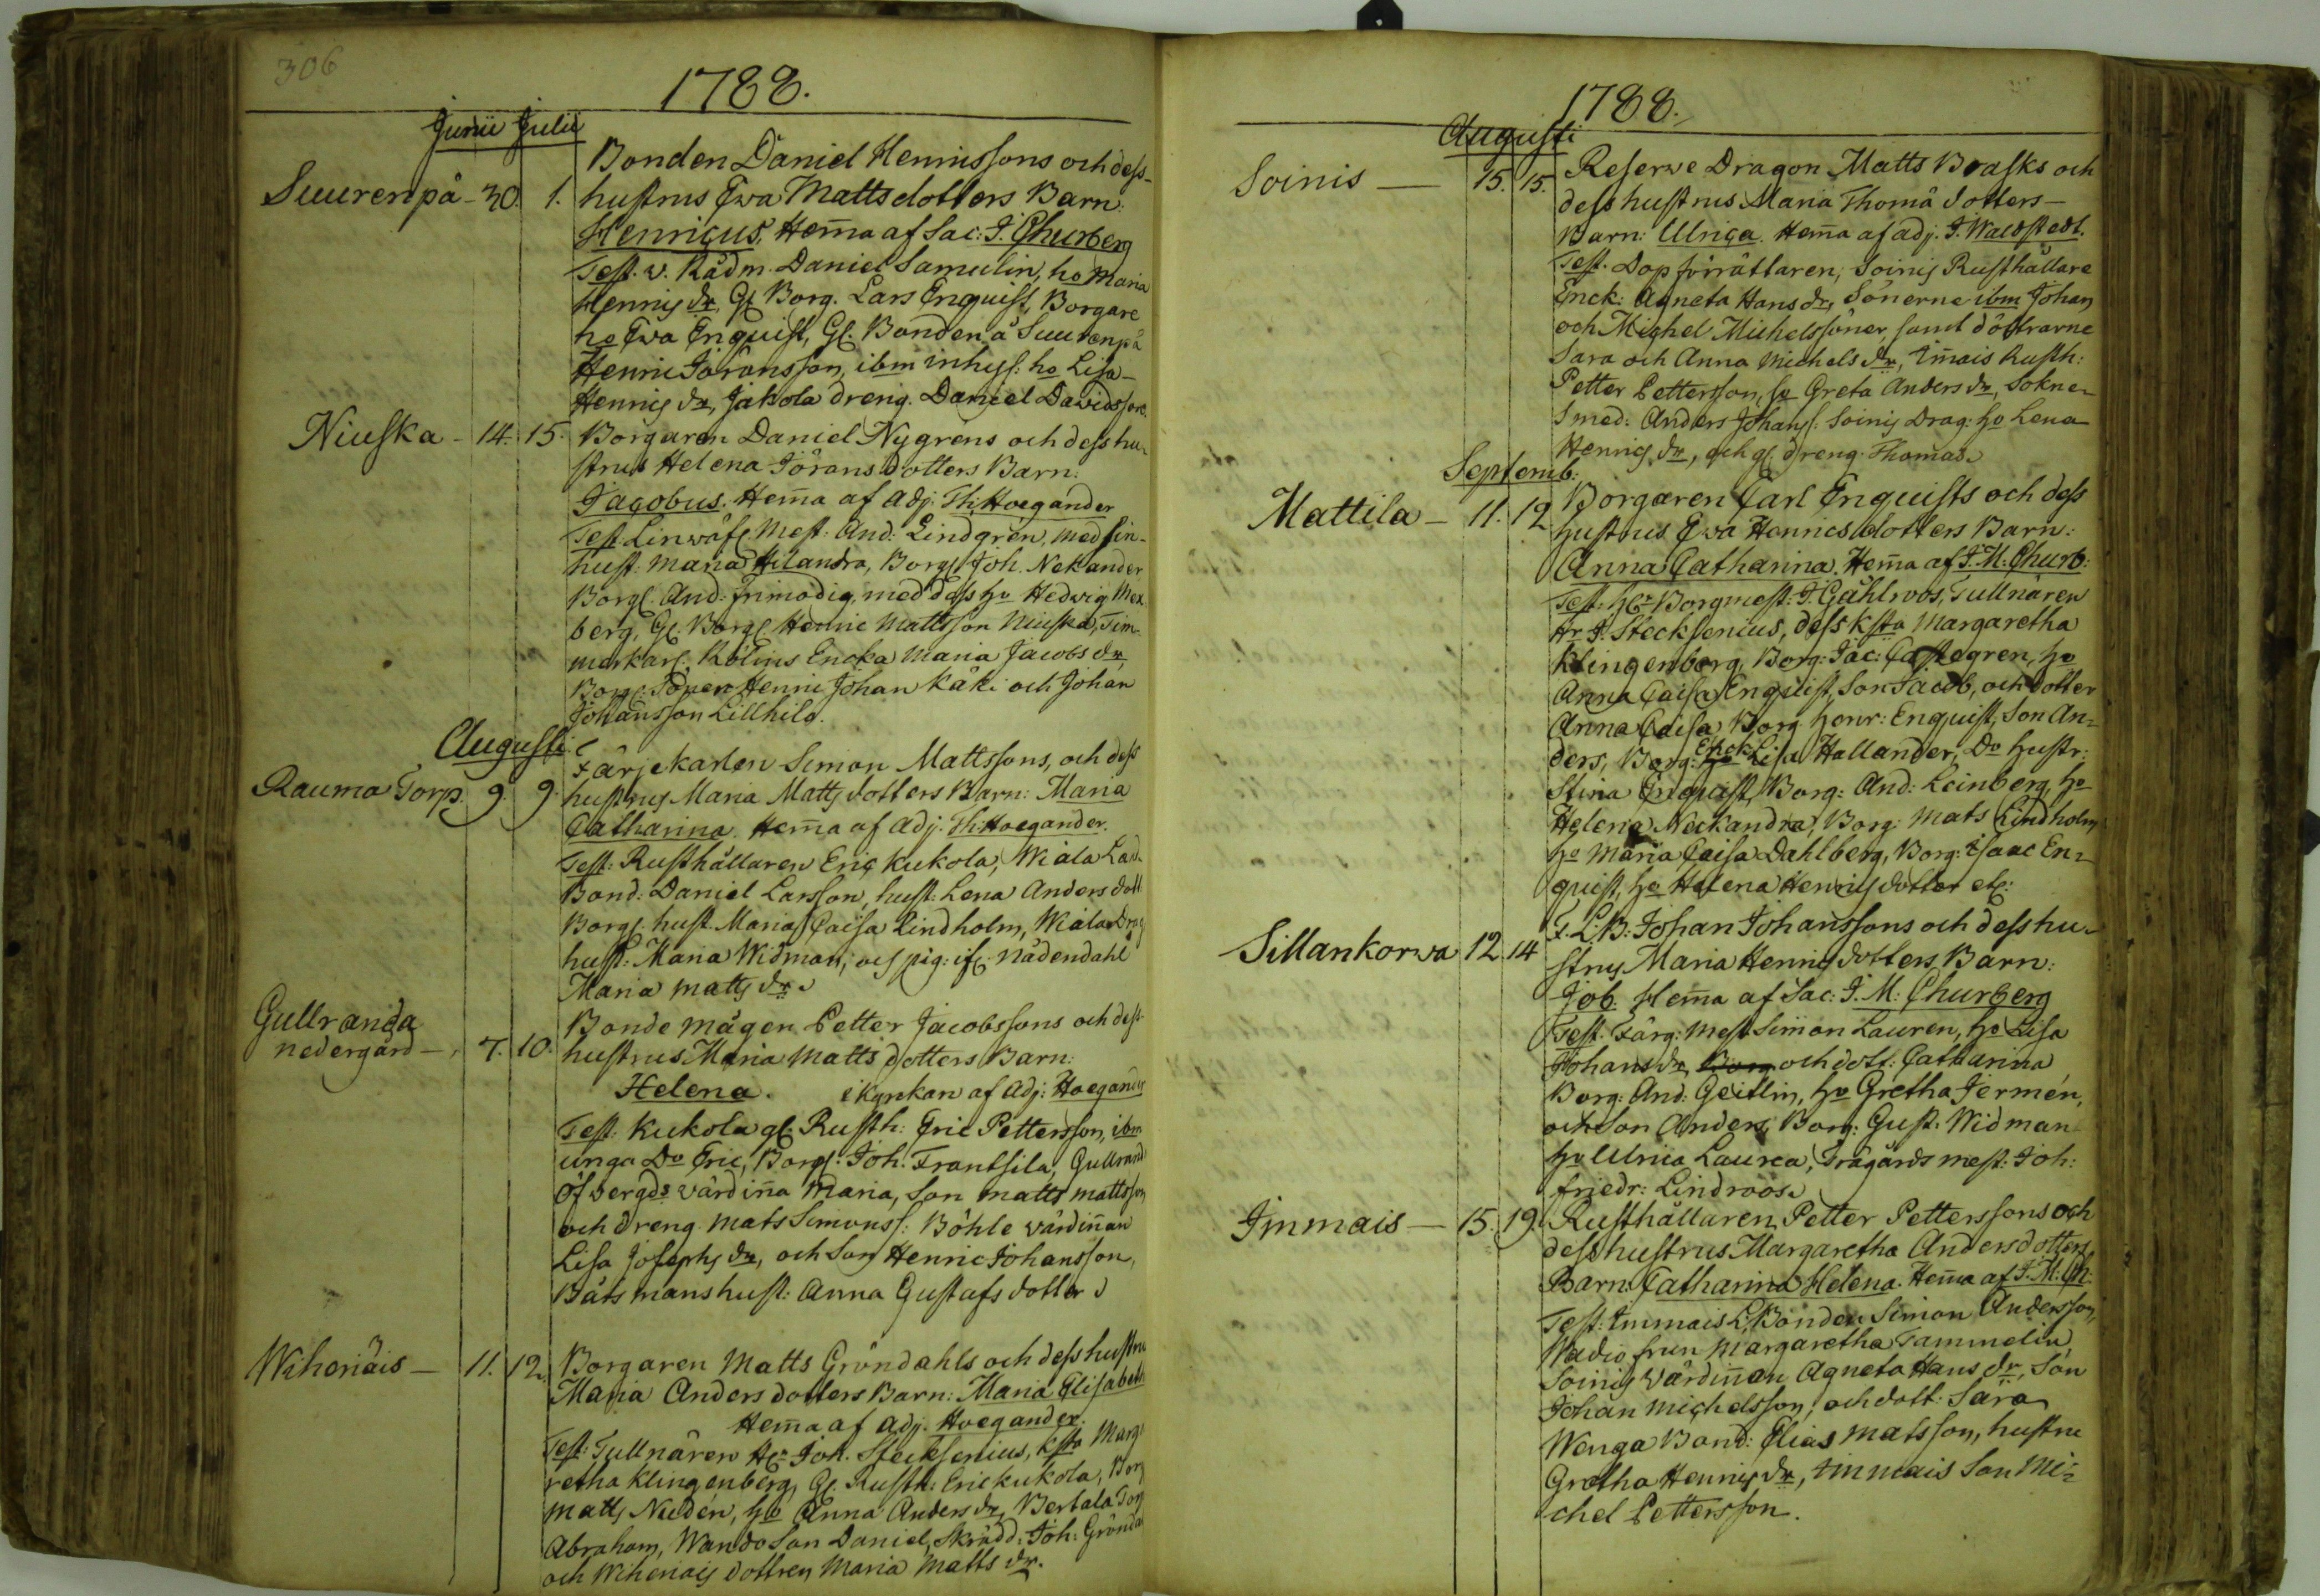 306
1788.
Junii Julii
Bonden Daniel Henrissons och dess
Suurenpä - 30. 1. hustrus Ewa Mattsdotters Barn:
Henricus, Hem̄a af Sac: J. Churberg
Test. v. Rådm. Daniel Samulin, ho Maria
Henrics dr, Gl. Borg. Lars Enquist, Borgare
ho Ewa Enquist, Gl. Bonden å Suurenpä
Henric Jöransson, ibm inhys: ho Lisa
Henrics dr, Jakola dreng. Daniel Davidsson.
Niuska - 14. 15. Borgaren Daniel Nygrens och dess hu-
strus Helena Jörans dotters Barn:
Jacobus. Hem̄a af Adj. Th: Hoegander
Test. Linwäf: Mest: And: Lindgren, med sin
hust: Maria Hilandra, Borg: Joh. Nekander
Borg: And: Frimodig, med dess ho Hedvig Mex
berg, Gl. Borg: Henric Mattsson Niuska, Tim-
merkarl: Encka Maria Jacobs dr,
Borg: Sönen Henric Johan Käki och Johan
Johansson Lillhila.
Augusti
Färjekarlen Simon Mattssons, och dess
Rauma Torp. 9. 9. hustrus Maria Matts dotters Barn: Maria
Catharina. Hem̄a af Adj. Th: Hoegander.
Test: Rusthållaren Eric Kukola, Wiala Land
Bond: Daniel Larsson, hust: Lena Anders dott
Borg: hust. Maria Caisa Lindholm, Wiala Drag
hust: Maria Widman, och pig: if: Nådendahl
Maria Matts dr.
Gullranda
Bonde mågen Petter Jacobssons och dess
nedergård - 7. 10. hustrus Maria Matts dotters Barn:
Helena. i kyrkan af Adj: Hoegander
Test: Kukola gl. Rusth: Eric Pettersson, ibm
unga Do Eric, Borg: Joh. Frantsila, Gullrand
Öfvergds värdin̄a Maria, Son Matts Mattsson
och dreng Mats Simonss: Böhle värdin̄an
Lisa Josephs dr, och Son Henric Johansson,
Båtsmans hust: Anna Gustafs dotter
Wihoriäis - 11. 12. Borgaren Matts Gröndahls och dess hustru
Maria Anders dotters Barn: Maria Elisabeth
Hem̄a af Adj. Hoegander.
Test: Tullnären Hr Joh. Stecksenius, ksta Marga
retha Klingenberg, Gl. Rusth: Eric Kukola, Borg
Matts Nieden, ho Anna Anders dr, Bertala Torp
Abraham, Wando Son Daniel, Skrädd: Joh: Gröndal
och Wihoriais dottren Maria Matts dr.
1788.
Augusti
Soinis - 15. 15. Reserwe Dragon Matts Brasks och
dess hustrus Maria Thomä dotters
Barn: Ulrica. Hem̄a af adj. J. Waldstedt.
Test. Dopförrättaren, Soinis Rusthållare
Enck: Agneta Hans dr, Sönerne ibm Johan
och Michel Michelssöner, samt döttrarne
Sara och Anna Michels dr, Im̄ais Rusth:
Petter Pettersson, ho Greta Anders dr, Sokne
Smed: Anders Johanss: Soinis Drag: ho Lena
Henrics dr, och gl. dreng Thomas.
Septemb:
Mattila - 11. 12. Borgaren Carl Enquists och dess
hustrus Ewa Henricsdotters Barn:
Anna Catharina. Hem̄a af J. M: Churb:
Test: Hr Borgmest: J. Gählroos, Tullnären
Hr J. Stecksenius, dess ksta Margaretha
Klingenberg, Borg: Jac: Castegren, ho
Anna Caisa Enquist, Son Jacob, och dotter
Anna Caisa, Borg: Henr: Enquist, Son An-
ders, Borg: Enck Lisa Hallander, Do hustr:
Stina Enquist, Borg: And: Leinberg, ho
Helena Neckandra, Borg: Mats Lindholm
ho Maria Caisa Dahlberg, Borg: Isaac En-
quist, ho Helena Henrics dotter etc:
Sillankorva 12 14 F. L. B: Johan Johanssons och dess hu-
strus Maria Henrics dotters Barn:
Job. Hem̄a af Sac: J. M: Churberg
Test. Färg: Mest Simon Lauren, ho Lisa
Johans dr, Borg och dott: Catharina
Borg: And: Geitlin, ho Gretha Jermén,
och Son Anders, Borg: Gust: Widman
ho Ulrica Laurea, Trägårds mest: Joh:
Friedr: Lindroos.
Immais - 15. 19. Rusthållaren Petter Petterssons och
dess hustrus Margaretha Anders dotters
Barn: Catharina Helena. Hem̄a af J. M: Ch:
Test: Immais L: Bonden Simon Andersson,
Wadio frun Margaretha Tammelin,
Soinis värdin̄an Agneta Hans dr, Son
Johan Michelsson, och dott: Sara
Wenga Bond: Elias Matsson, hustru
Gretha Henrics dr, Immais Son Mi-
chel Pettersson.